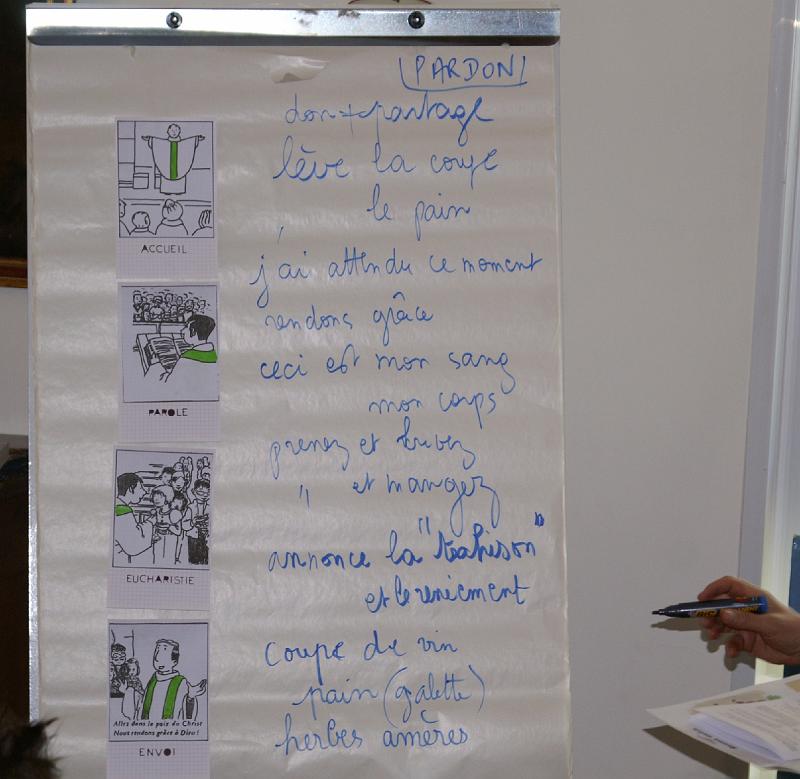 PARDON
don + partage
lève la coupe
le pain
j'ai attendu ce moment
rendons grâce
ceci est mon sang
mon corps
prenez et buvez
" et mangez
annonce la "trahison"
et le reniement
coupe de vin
pain (galette)
herbes amères
ACCUEIL
PAROLE
EUCHARISTIE
Allez dans la paix du Christ
Nous rendons grâce à Dieu !
ENVOI